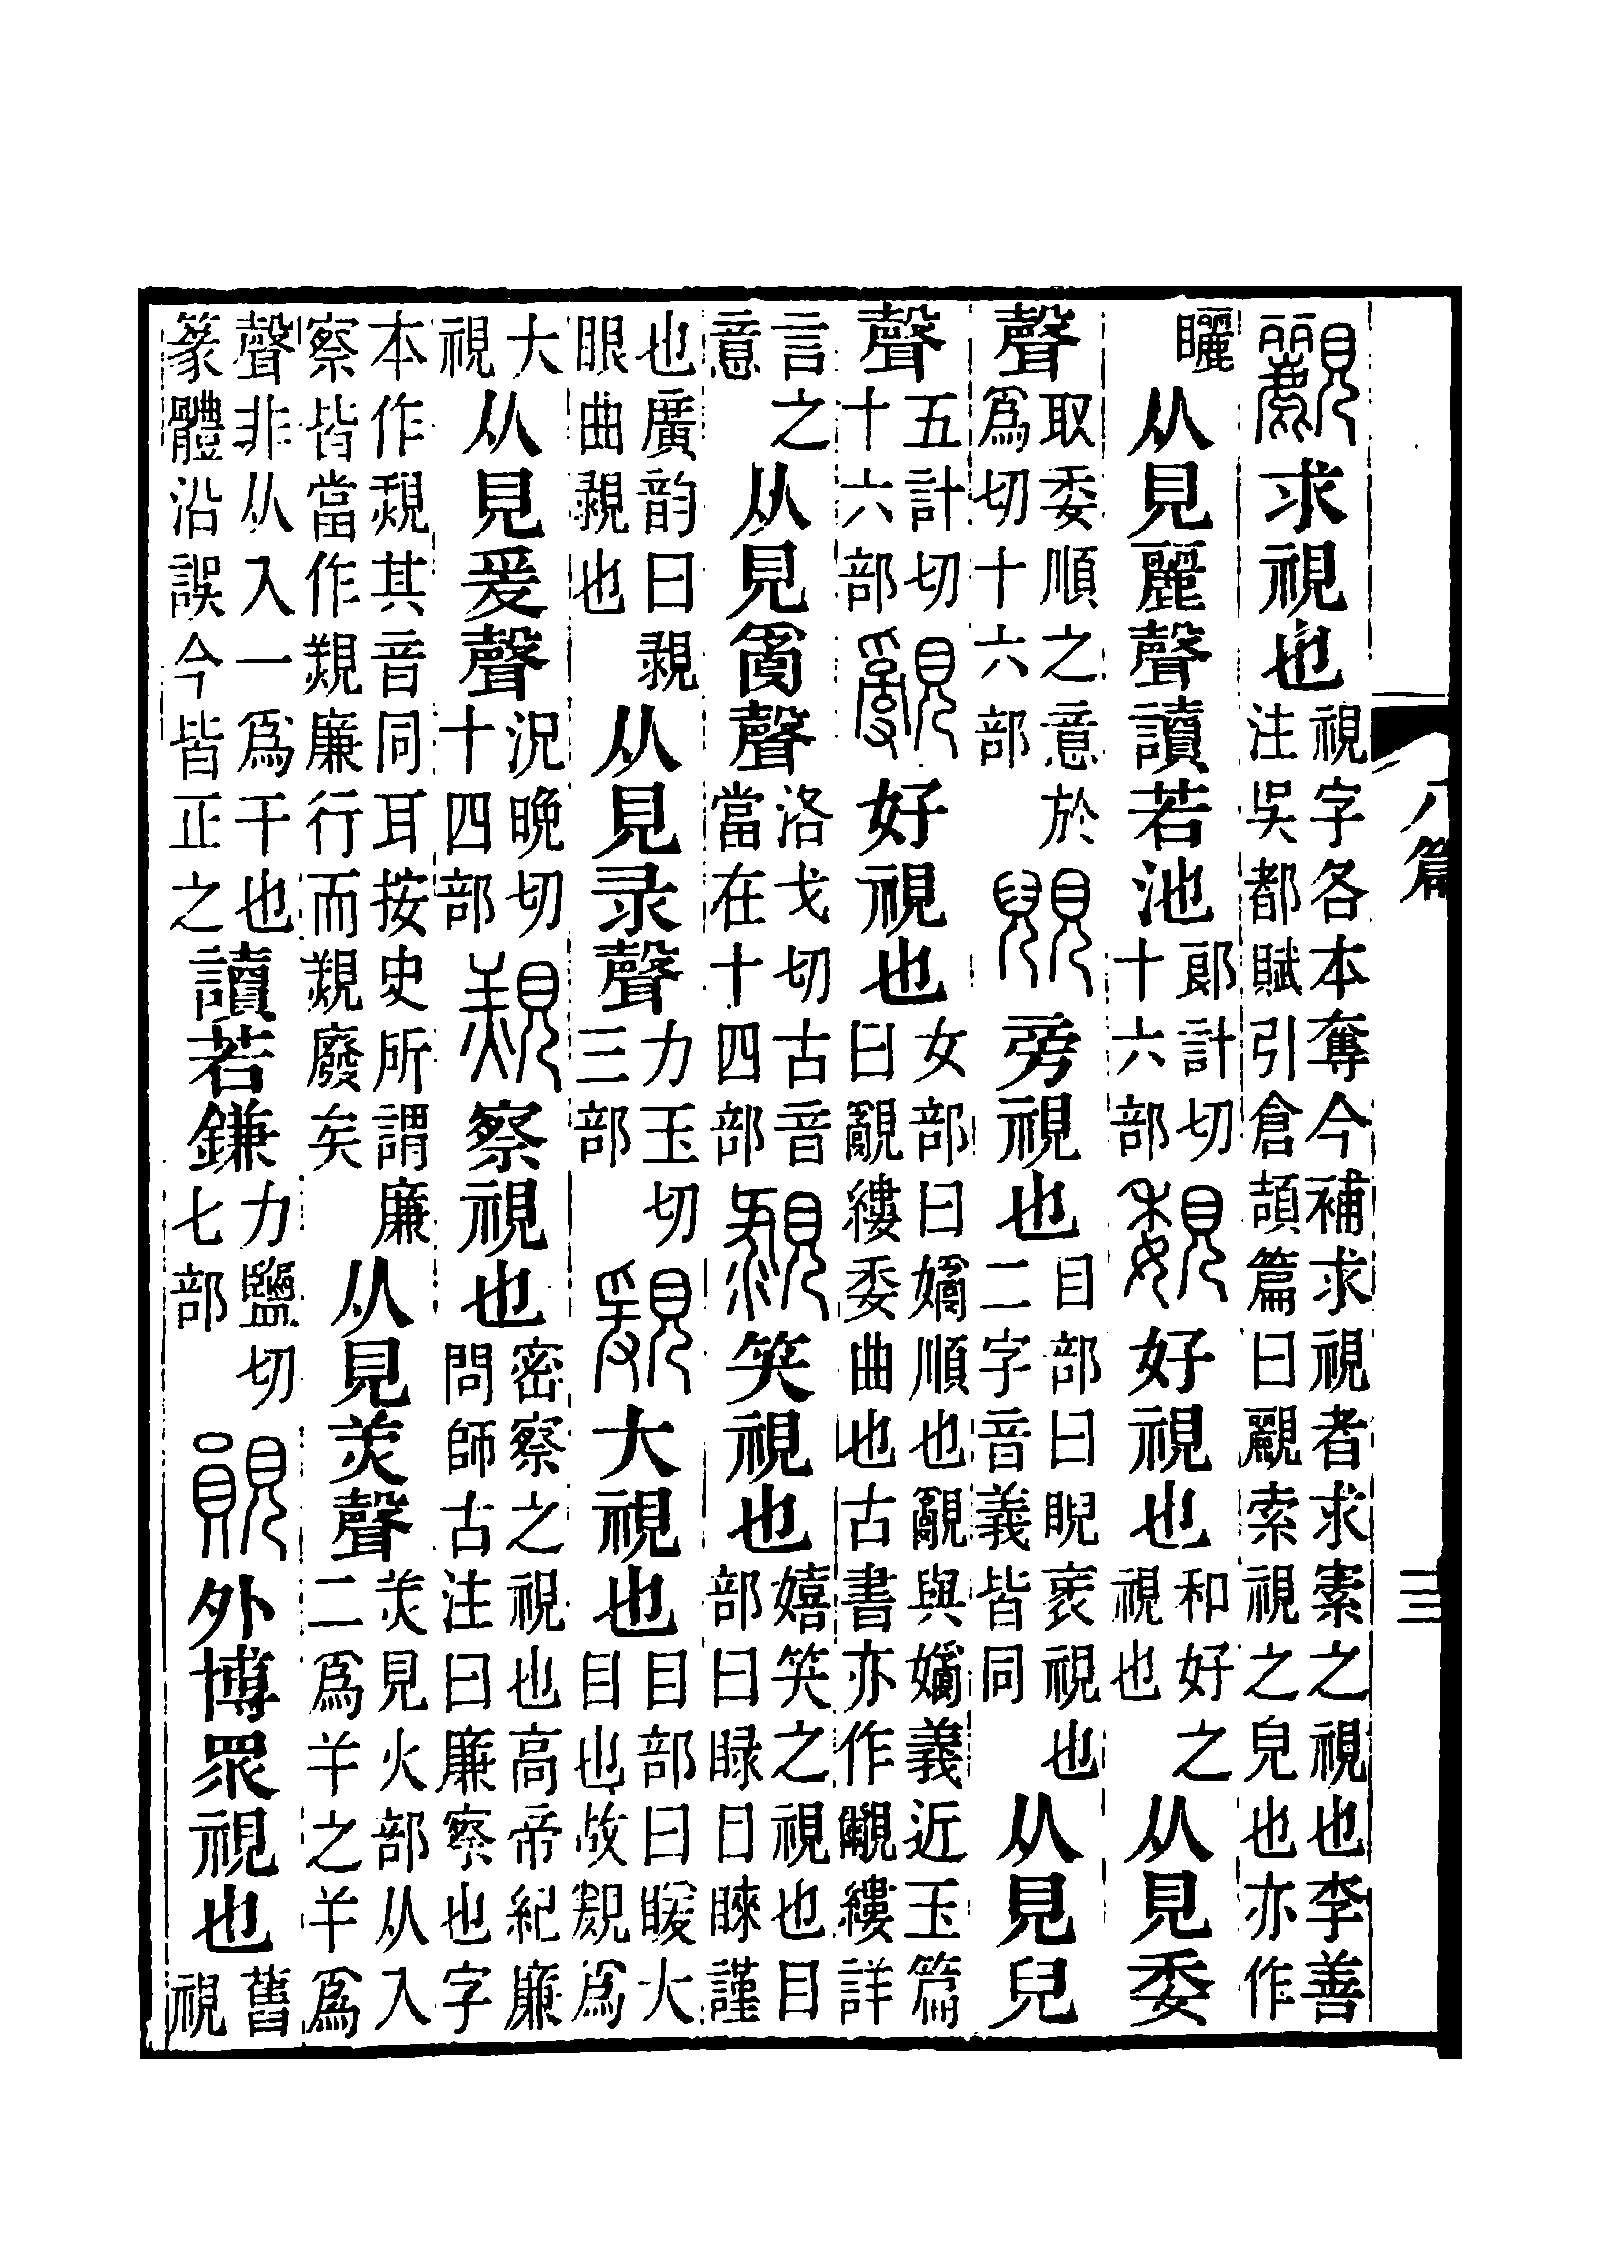 䚕求視也視字各本奪今補求視者求索之視也李善注吳都賦引倉頡篇曰䚕索視之皃也亦作
矖从見麗聲讀若池郎計切十六部覣好視也和好之視也从見委
聲取委順之意於爲切十六部䙿旁視也目部曰睨衺視也二字音義皆同从見兒
聲五計切十六部覶好視也女部曰㛤順也覶與㛤義近玉篇曰覶縷委曲也古書亦作覼縷詳
言之意从見𤔔聲洛戈切古音當在十四部䚉笑視也嬉笑之視也目部曰睩目睞謹
也廣韵曰䚉眼曲䚉也从見录聲力玉切三部𧡩大視也目部曰暖大目也故𧡩爲
大視从見爰聲況晚切十四部覝察視也密察之視也高帝紀廉問師古注曰廉察也字
本作覝其音同耳按史所謂廉察皆當作覝廉行而覝廢矣从見𤆍聲𤆍見火部从入二爲𢆉𢆉之𢆉爲
聲非从入一爲干也篆體沿誤今皆正之讀若鎌力鹽切七部䚋外博眾視也舊視
八篇
三